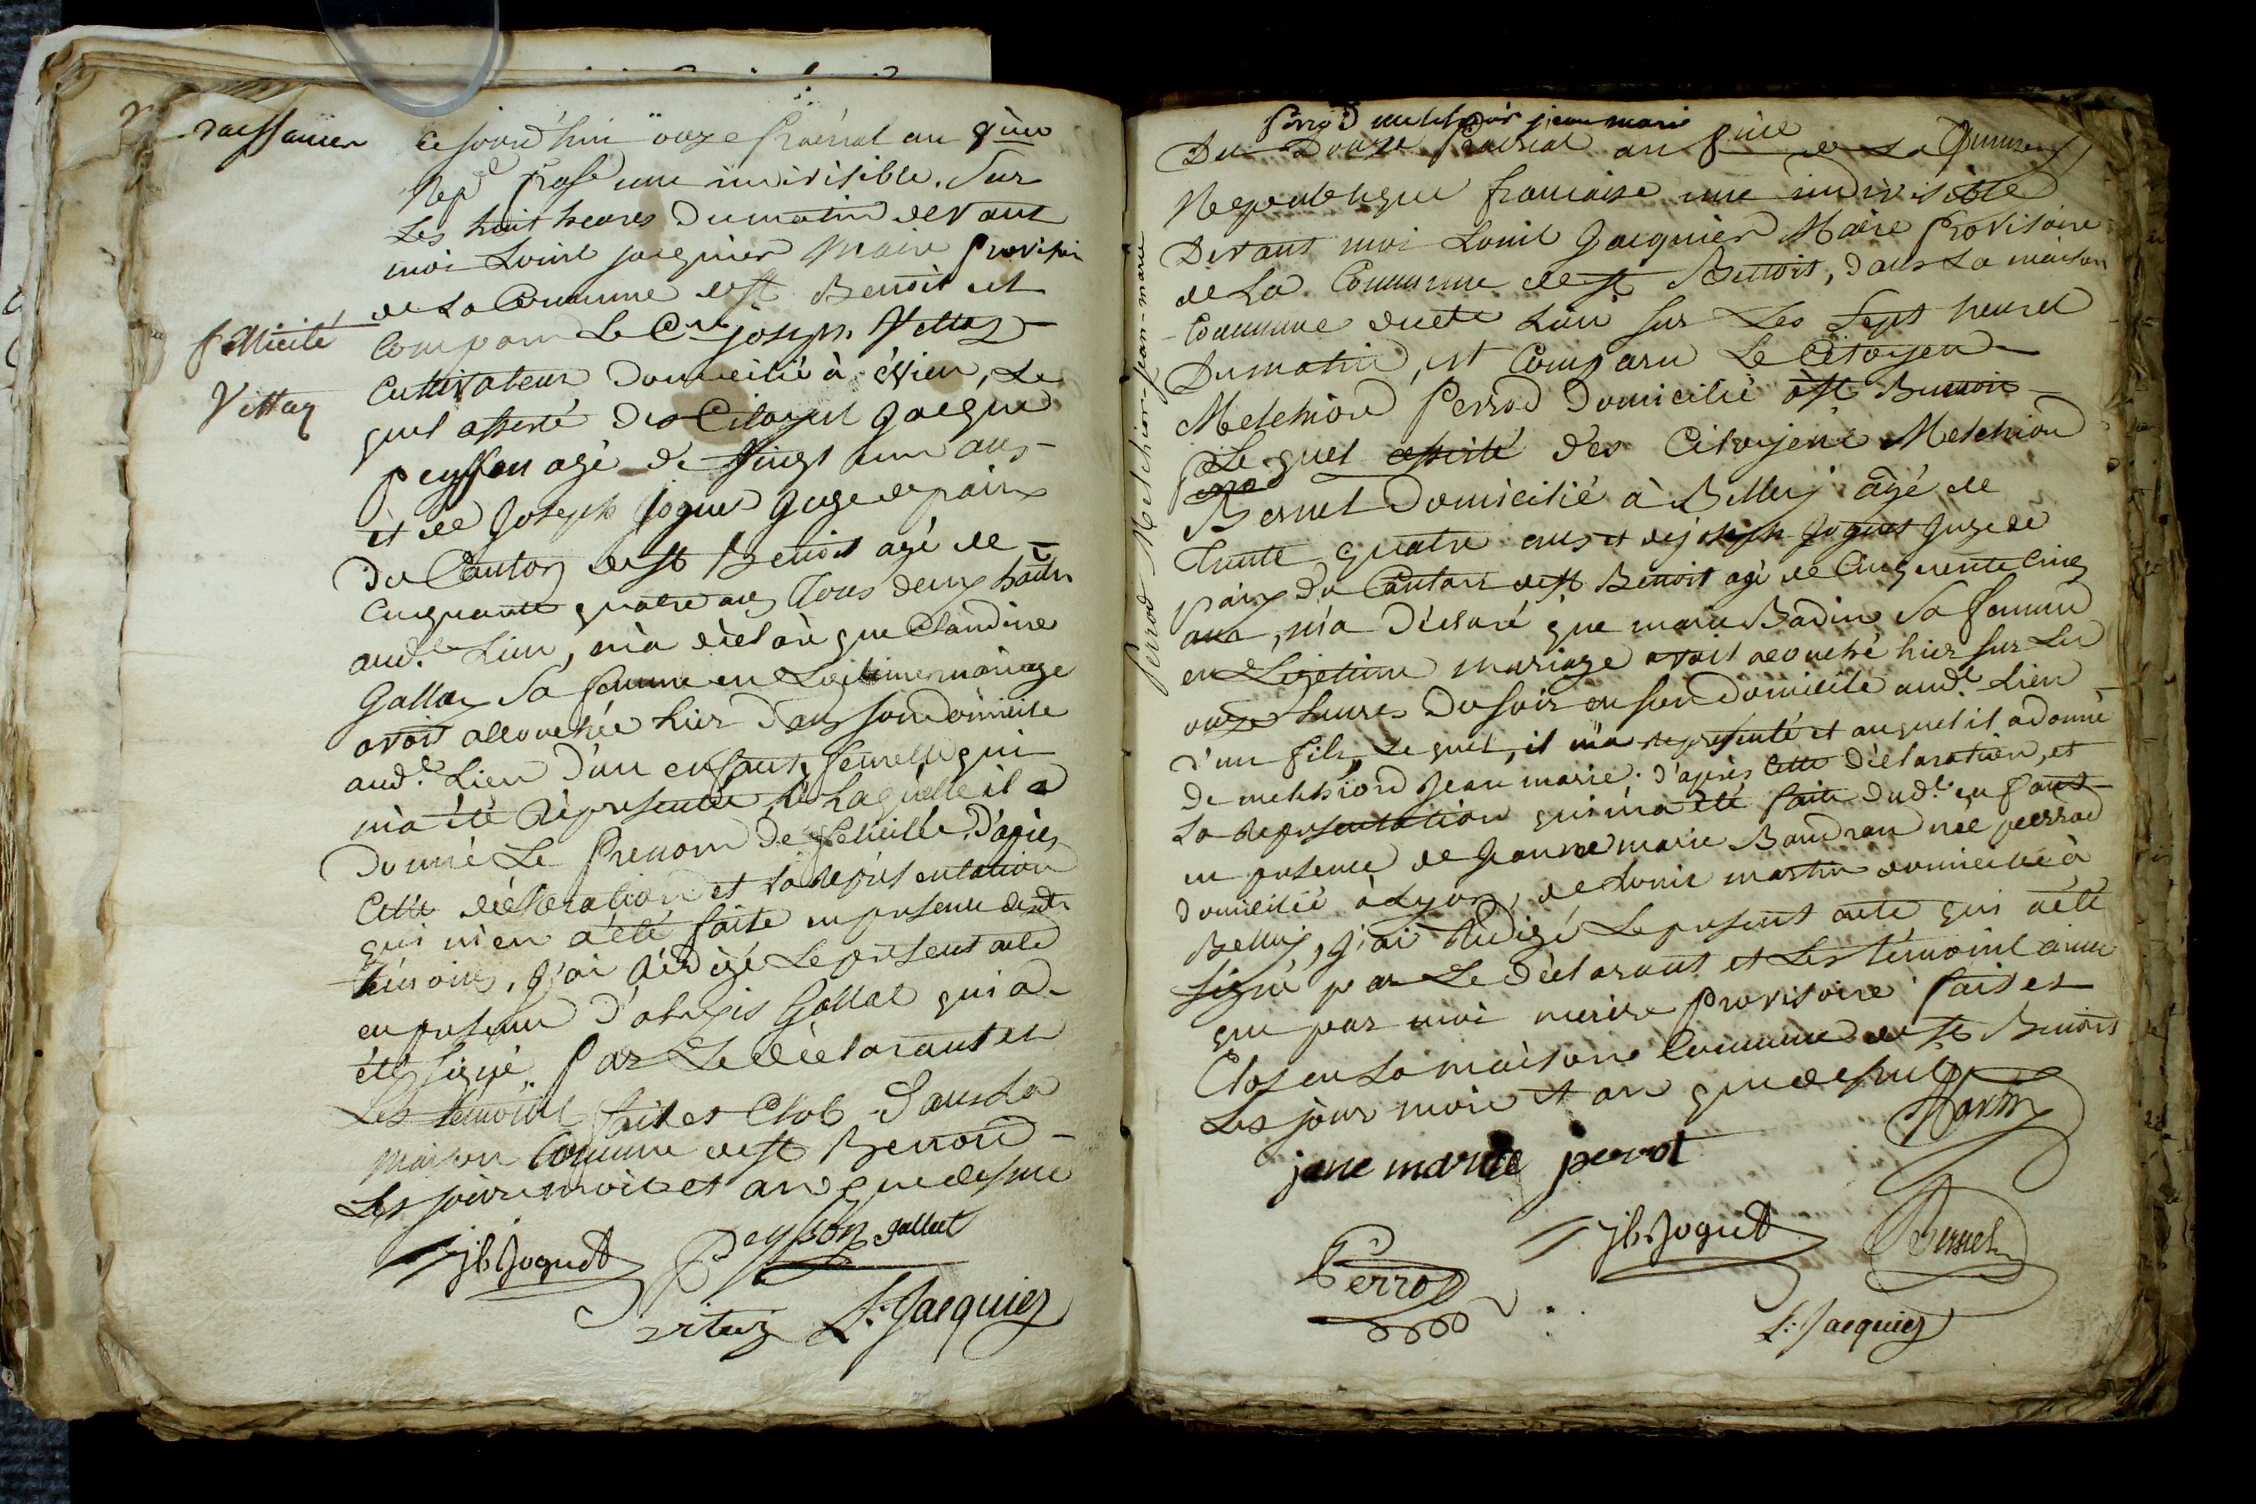 Naissance
Ce jourd'hui onze Prairial an 8ième
Rep.e franse une indivisible. Sur
Les huit heures du matin devant
moi Louis jacquier Maire Provisoir
de La Commune de st Benoit est
félicité
Comparu Le C.en joseph Vettay
Vettay
Cultivateur domicilié à évieu, Le
quel assisté des Citoyens Jacques
Peysson agé de Vingt un ans
et de Joseph Joguet Juge de paix
Du Canton de st Benoit agé de
Cinquante quatre ans Tous deux
aud.t Lieu, m'a déclaré que Claudine
Gallay Sa femme en Legitime mariage
avoit accouchée hier dans son domicile
aud.t Lieu d'un enfant femelle qui
m'a été Représentée, à Laquelle il a
Donné Le Prenom de félicité. D'après
Cette déclaration et la représentation
qui m'en a été faite en présence desdts
témoins, J'ai rédigé Le présent acte
en présence d' Gallat qui a
été signé Par Le déclarant et
Les témoins fait et Clos dans La
maison Commune de st Benoit
Les jour mois et an que dessus
jh Joguet Peysson gallat
vitaz L. Jacquier
Perrod melchior jean marie
Du Douze Prairial an 8ième de La
Republique francaise une indivisible
Devant moi Louis Jacquier Maire Provisoire
de La Commune de st Benoit, dans La maison
Commune dudt Lieu sur Les Sept heures
Du matin, est Comparu Le Citoyen
Melchiord Perrod Domicilié à st Benoit
Le quel assisté des Citoyens Melchiord
Perrod
Bernet Domicilié à Belley âgé de
Trente quatre ans et de joseph Joguet Juge de
Paix du Canton de st Benoit agé de Cinquante Cinq
ans, m'a Déclaré que marie Badin Sa femme
en Legetime mariage avoit accouché hier sur Les
onze heures du soir en son domicile aud.t Lieu
d'un fils, Le quel, il m'a représenté et auquel il a donné
De melchiord Jean marie. d'après Cette déclaration, et
La représentation qui m'a été faite dud.t enfant
en présence de Jeanne marie Baudrand née perrod
domicilié à Lyon, de Louis martin domicilié à
Belley, J'ai Rédigé Le présent acte qui a été
Signé par Le déclarant et Les témoins ainsi
que par moi maire Provisoire fait et
Clos en La maison Commune de st Benoit
Les jour mois et an que dessus
Martin
jane marie perrot
jh Joguet
Bernet
Perrod
L. Jacquier
Perrod Melchior-Jean-marie